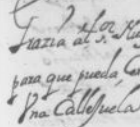 Grazia al S.or
para que pueda
Vna Callejuela